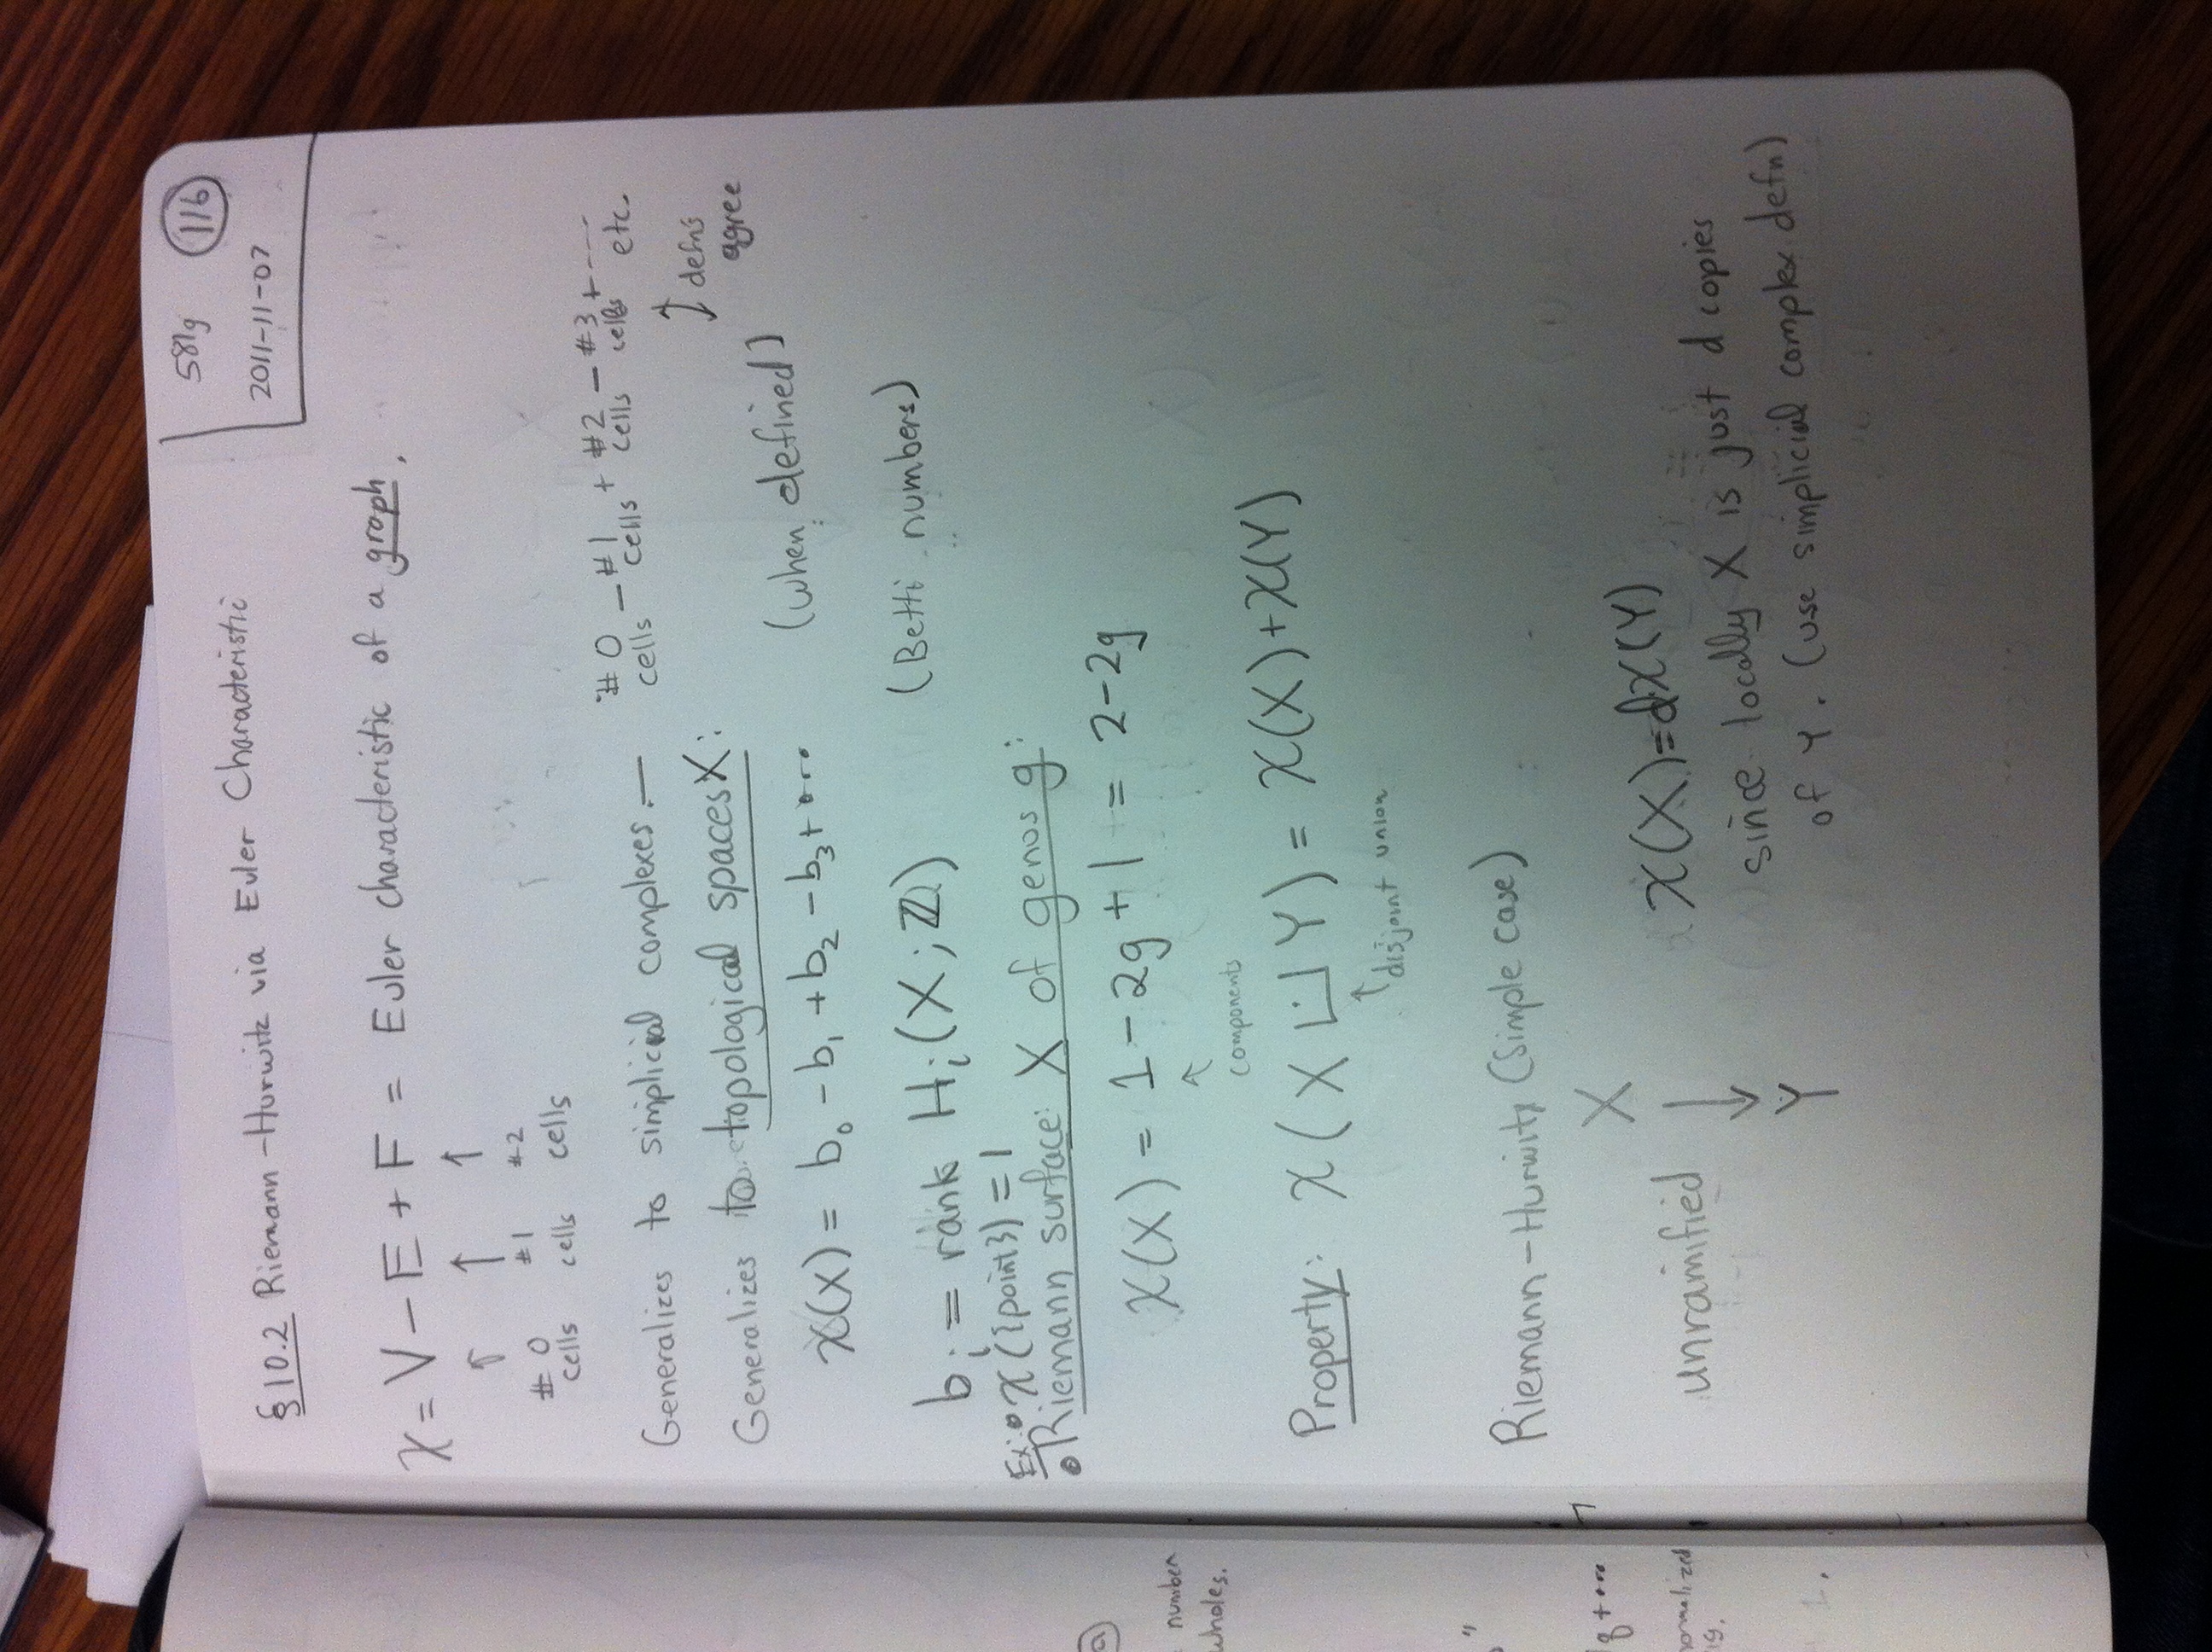 581g 116
2011-11-07
§10.2 Riemann-Hurwitz via Euler Characteristic
χ = V - E + F = Euler characteristic of a graph.
↑ ↑ ↑
#0 cells #1 cells #2 cells
Generalizes to simplicial complexes.— #0 cells - #1 cells + #2 cells - #3 cells + ---- etc.
Generalizes to topological spaces X: ↕ defns agree
χ(X) = b₀ - b₁ + b₂ - b₃ + •••• (when defined)
bᵢ = rank Hᵢ(X; ℤ) (Betti numbers)
Ex: • χ({point}) = 1
• Riemann surface X of genus g:
χ(X) = 1 - 2g + 1 = 2-2g
↑ components
Property: χ(X ⊔ Y) = χ(X) + χ(Y)
↑ disjoint union
Riemann-Hurwitz (simple case)
X
unramified ↓ χ(X) = dχ(Y)
Y since locally X is just d copies
of Y. (use simplicial complex defn)
number
wholes.
"
8 + •••